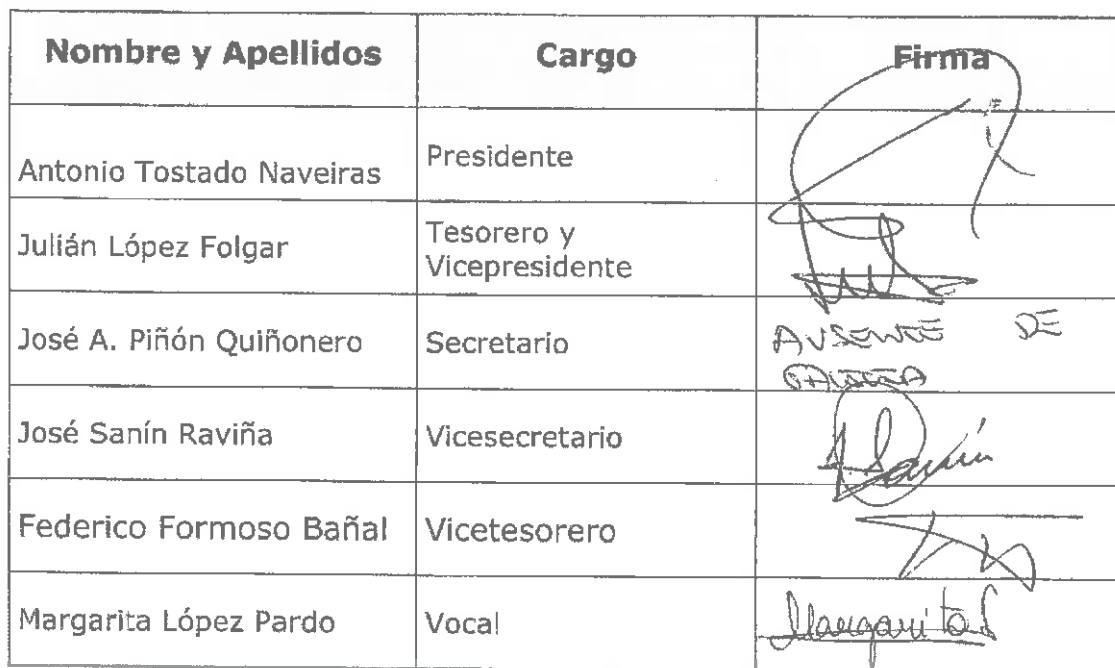 Nombre y Apellidos Cargo Firma
Antonio Tostado Naveiras Presidente
Julián López Folgar Tesorero y
Vicepresidente
José A. Piñón Quiñonero Secretario AUSENTE DE
José Sanín Raviña Vicesecretario
Federico Formoso Bañal Vicetesorero
Margarita López Pardo Vocal Margarita